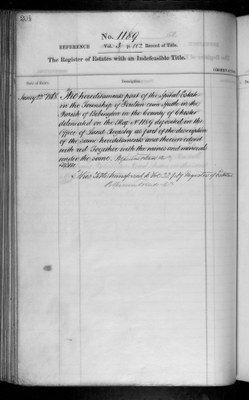 No. 1189
REFERENCE Vol. 3 p. 112 Record of Title.
The Register of Estates with an Indefeasible Title.
Date of Entry. Description
The hereditaments part of the Spital Estate
in the Township of Poulton cum Spittle in the
Parish of Bebington in the County of Chester
delineated on the Map No 1189 deposited in the
Office of Land Registry as part of the description
of the same hereditaments and thereon edged
with red Together with the mines and minerals
under the same.
Title transferred to Vol. 22 Register of Estates